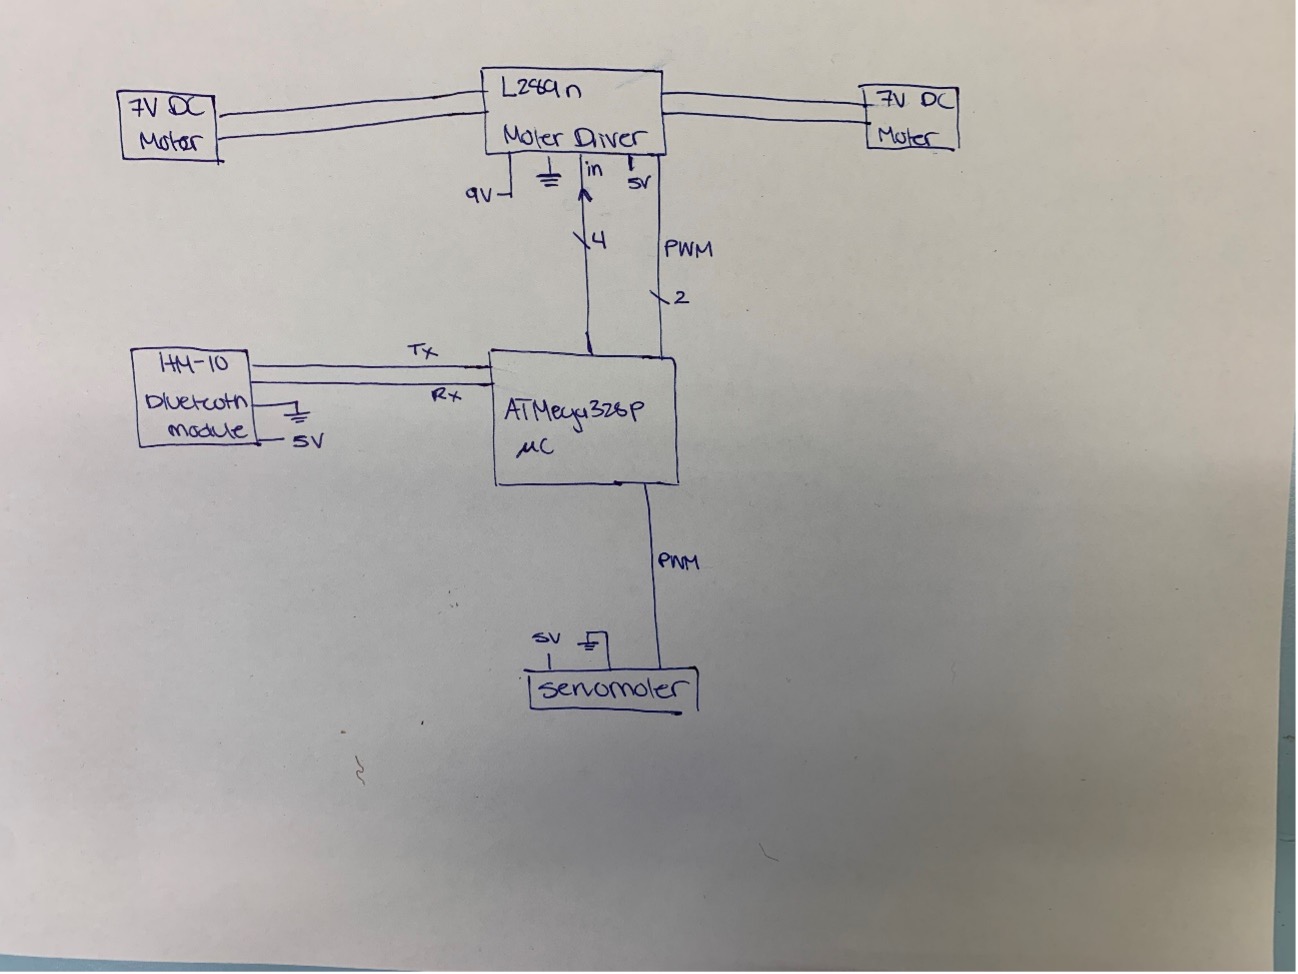 7V DC
Motor
L289n
Moter Driver
7V DC
Moter
9V
in
5V
4
PWM
2
HM-10
bluetooth
module
5V
Tx
Rx
ATMega328P
μC
PWM
5V
servomoter